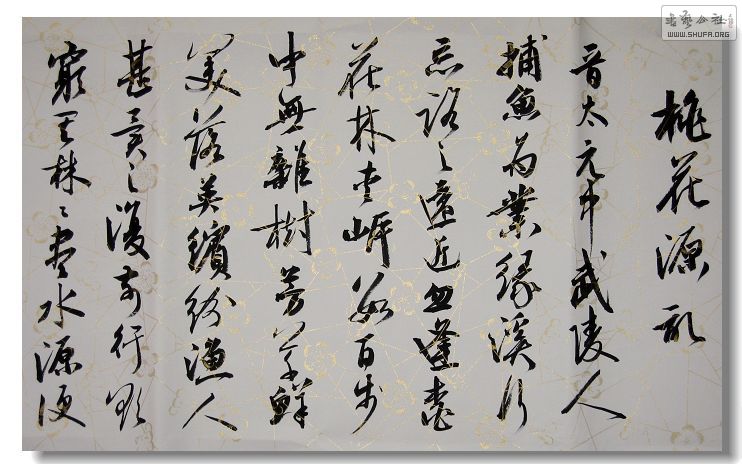 桃花源記
晋太元中武陵人
捕魚為業緣溪行
忘路之遠近忽逢桃
花林夾岸数百步
中無雜樹芳草鮮
美落英繽紛漁人
甚異之復前行欲
窮其林〻盡水源便
書藝公社
WWW.SHUFA.ORG